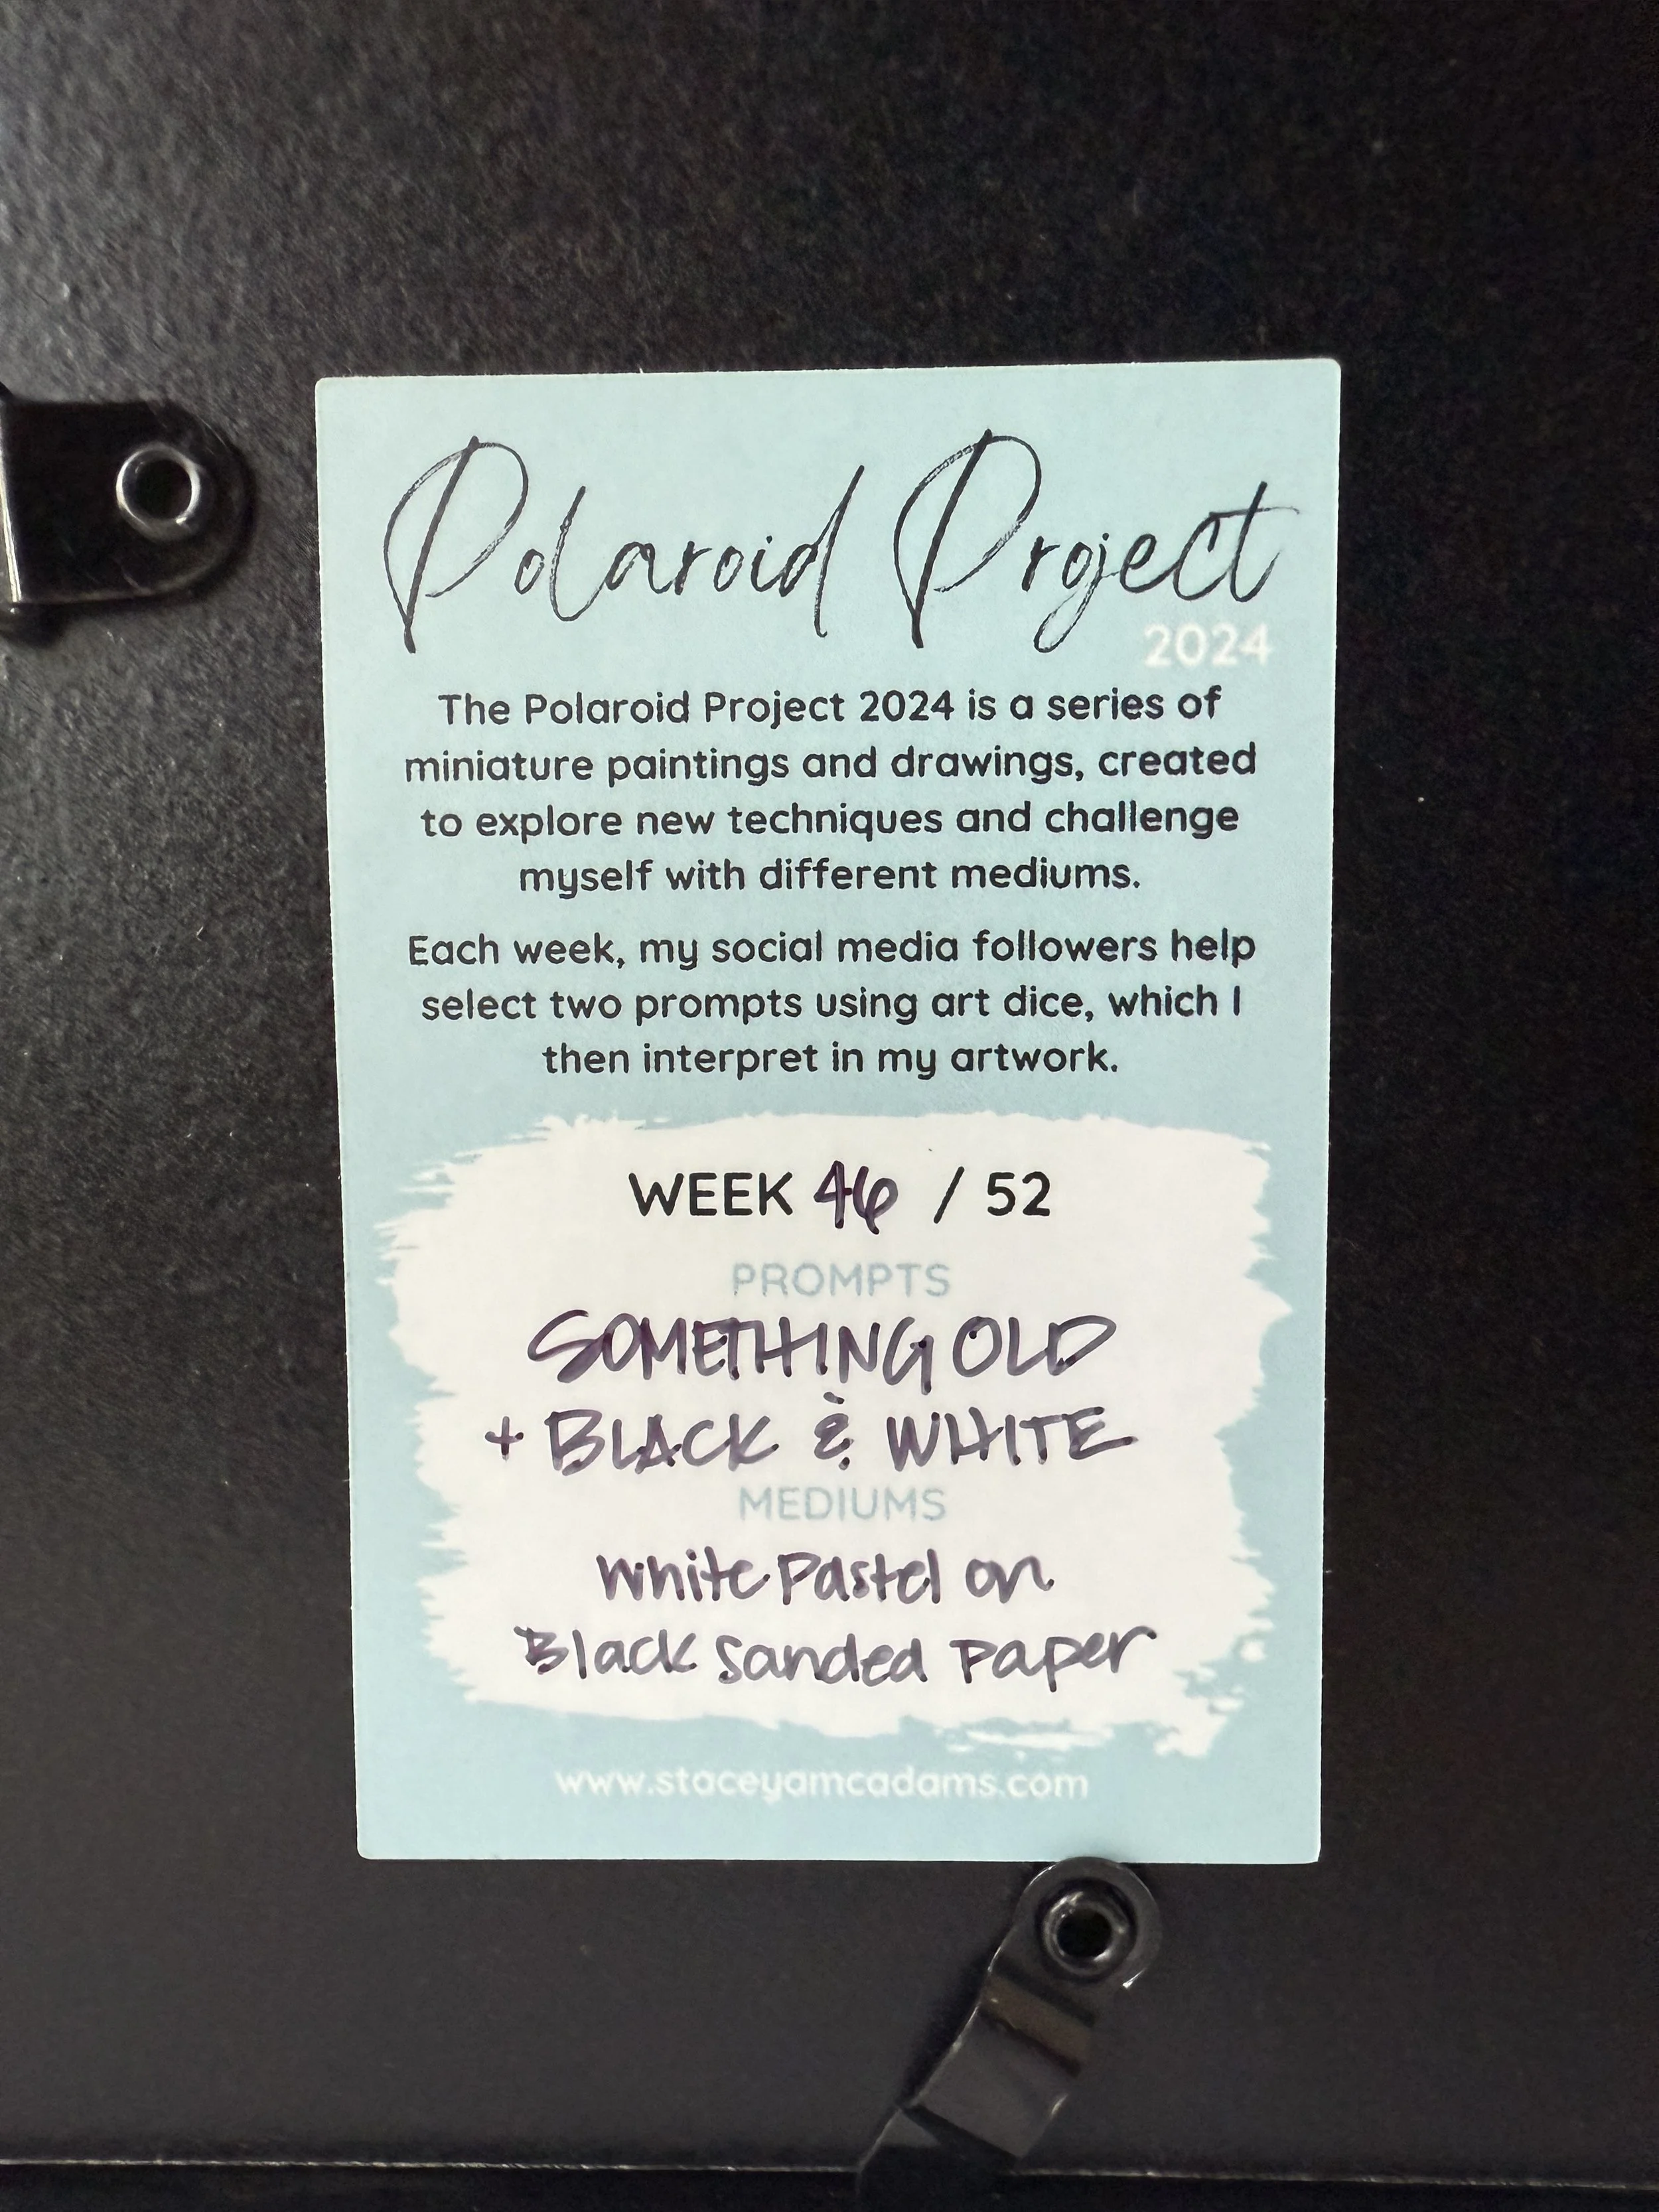 Polaroid Project
2024
The Polaroid Project 2024 is a series of
miniature paintings and drawings, created
to explore new techniques and challenge
myself with different mediums.
Each week, my social media followers help
select two prompts using art dice, which I
then interpret in my artwork.
WEEK 46 / 52
PROMPTS
SOMETHING OLD
+ BLACK & WHITE
MEDIUMS
White Pastel on
Black Sanded Paper
www.staceyamcadams.com